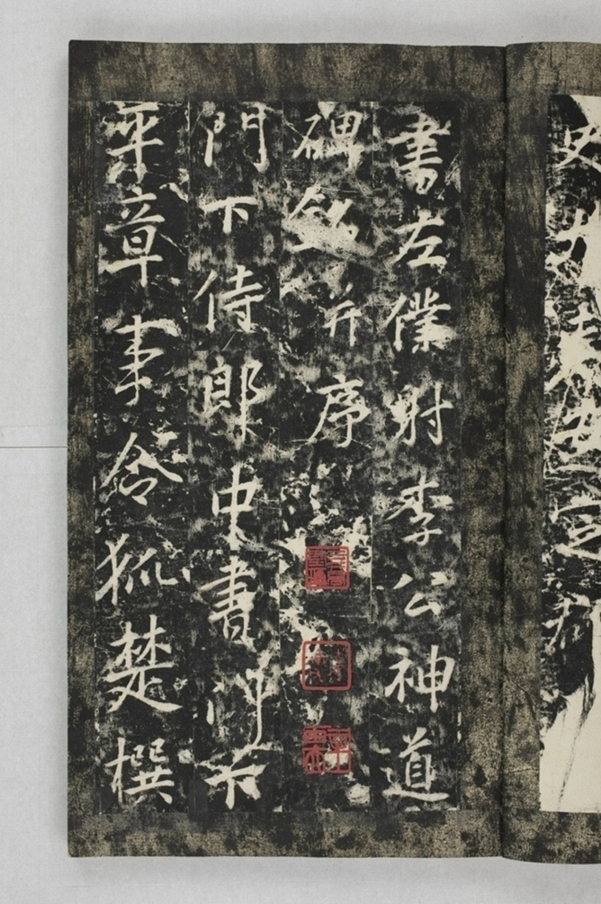 書左僕射李公神道
碑銘并序
門下侍郎中書門下
平章事令狐楚撰